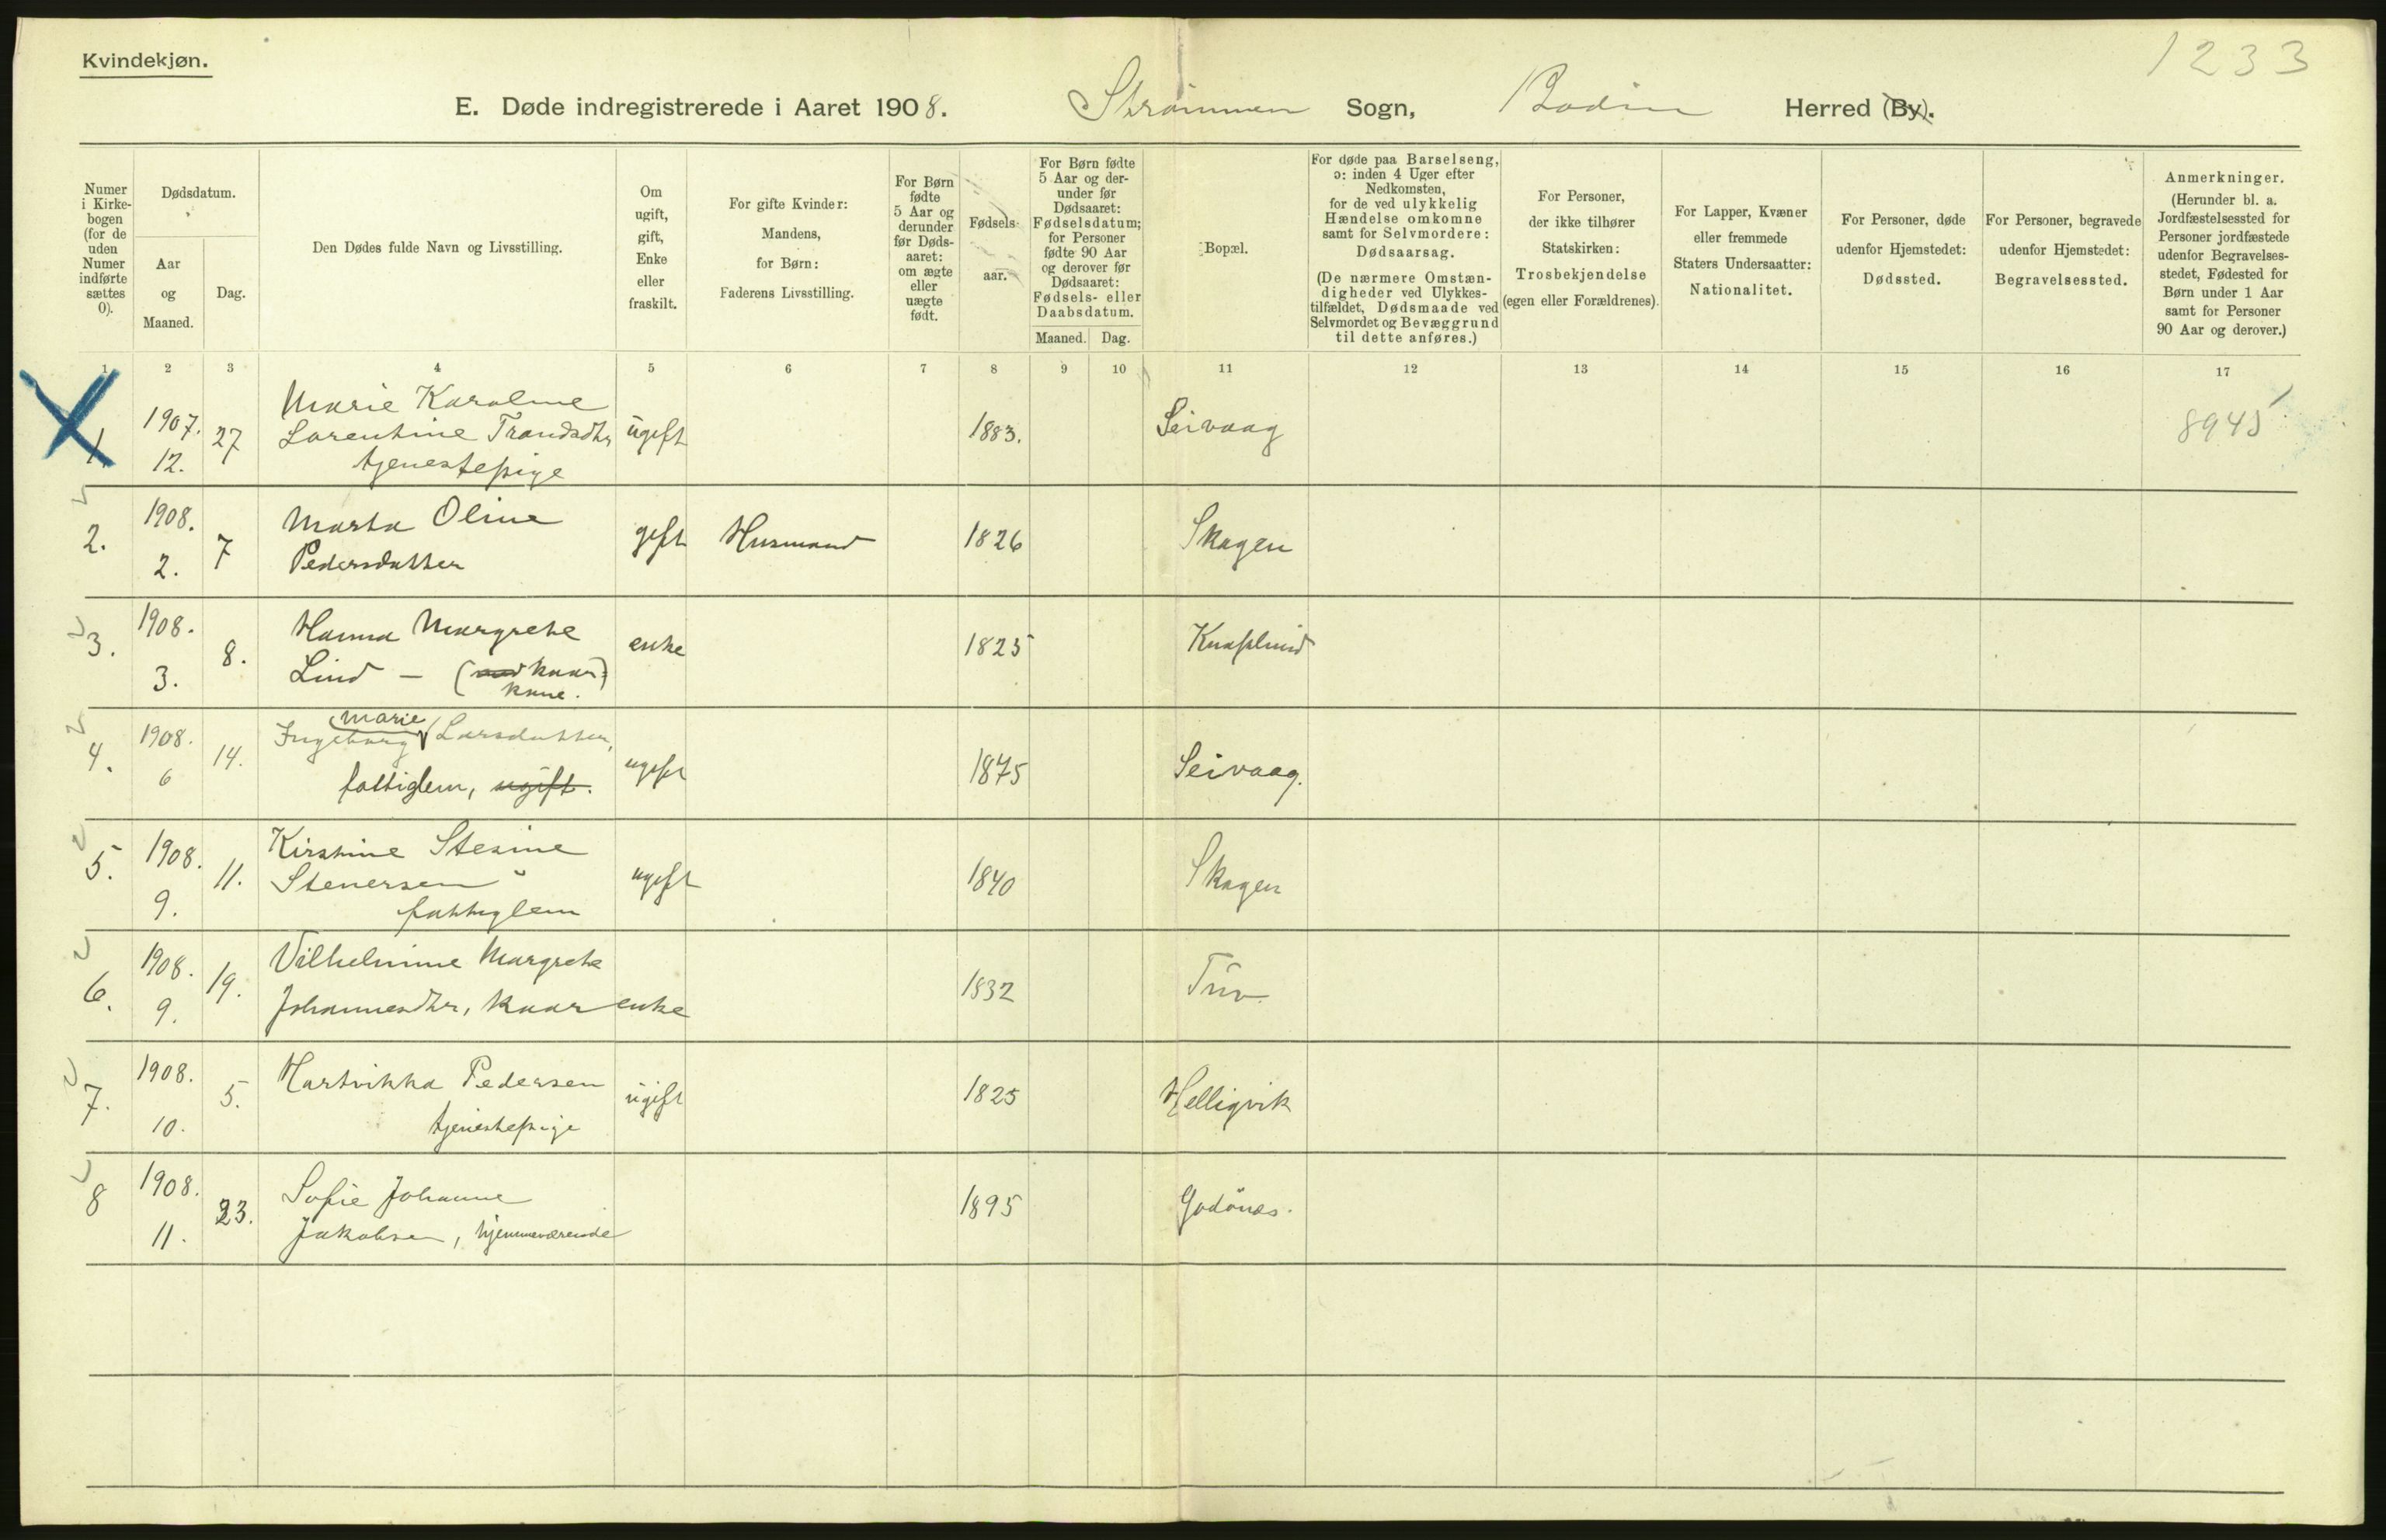 Kvindekjøn.
1233
E. Døde indregistrerede i Aaret 1908. Strömmen Sogn, Bodin Herred (By).
Numer i Kirkebogen (for de uden Numer indførte sættes 0).
Dødsdatum.
Aar og Maaned.
Dag.
Den Dødes fulde Navn og Livsstilling.
Om ugift, gift, Enke eller fraskilt.
For gifte Kvinder: Mandens, for Børn: Faderens Livsstilling.
For Børn fødte 5 Aar og derunder før Dødsaaret: om ægte eller uægte født.
Fødselsaar.
For Børn fødte 5 Aar og derunder før Dødsaaret: Fødselsdatum; for Personer fødte 90 Aar og derover før Dødsaaret: Fødsels- eller Daabsdatum.
Maaned. Dag.
Bopæl.
For døde paa Barselseng, ɔ: inden 4 Uger efter Nedkomsten, for de ved ulykkelig Hændelse omkomne samt for Selvmordere: Dødsaarsag. (De nærmere Omstændigheder ved Ulykkestilfældet, Dødsmaade ved Selvmordet og Bevæggrund til dette anføres.)
For Personer, der ikke tilhører Statskirken: Trosbekjendelse (egen eller Forældrenes).
For Lapper, Kvæner eller fremmede Staters Undersaatter: Nationalitet.
For Personer, døde udenfor Hjemstedet: Dødssted.
For Personer, begravede udenfor Hjemstedet: Begravelsessted.
Anmerkninger. (Herunder bl. a. Jordfæstelsessted for Personer jordfæstede udenfor Begravelsesstedet, Fødested for Børn under 1 Aar samt for Personer 90 Aar og derover.)
1 2 3 4 5 6 7 8 9 10 11 12 13 14 15 16 17
1. 1907. 12. 27 Marie Karoline Lorentine Trondsdtr tjenestepige ugift 1883. Seivaag 8945
2. 1908. 2. 7 Marta Oline Pedersdatter gift Husmand 1826 Skagen
3. 1908. 3. 8. Hanna Margrete Lind – (kaarkone. enke 1825 Knaplund
4. 1908. 6 14. Ingeborg Marie Larsdatter, fattiglem, ugift. ugift 1875 Seivaag.
5. 1908. 9. 11. Kirstine Stesine Stenersen fattiglem ugift 1840 Skagen
6. 1908. 9. 19. Vilhelmine Margrete Johannesdtr, kaarenke 1832 Tuv
7. 1908. 10. 5. Hartvikka Pedersen tjenestepige ugift 1825 Helligvik
8 1908. 11. 23. Sofie Johanne Jakobsen, hjemmeværende 1895 Godönes.